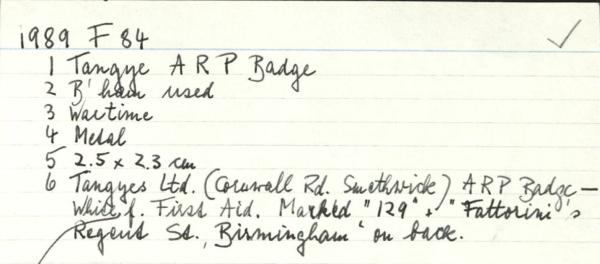 1989 F 84
1 Tangye A R P Badge
2 B'ham used
3 Wartime
4 Metal
5 2.5 x 2.3 cm
6 Tangyes Ltd. (Cornwall Rd. Smethwick) ARP Badge –
White f. First Aid. Marked "129" + "Fattorini's
Regent St., Birmingham" on back.